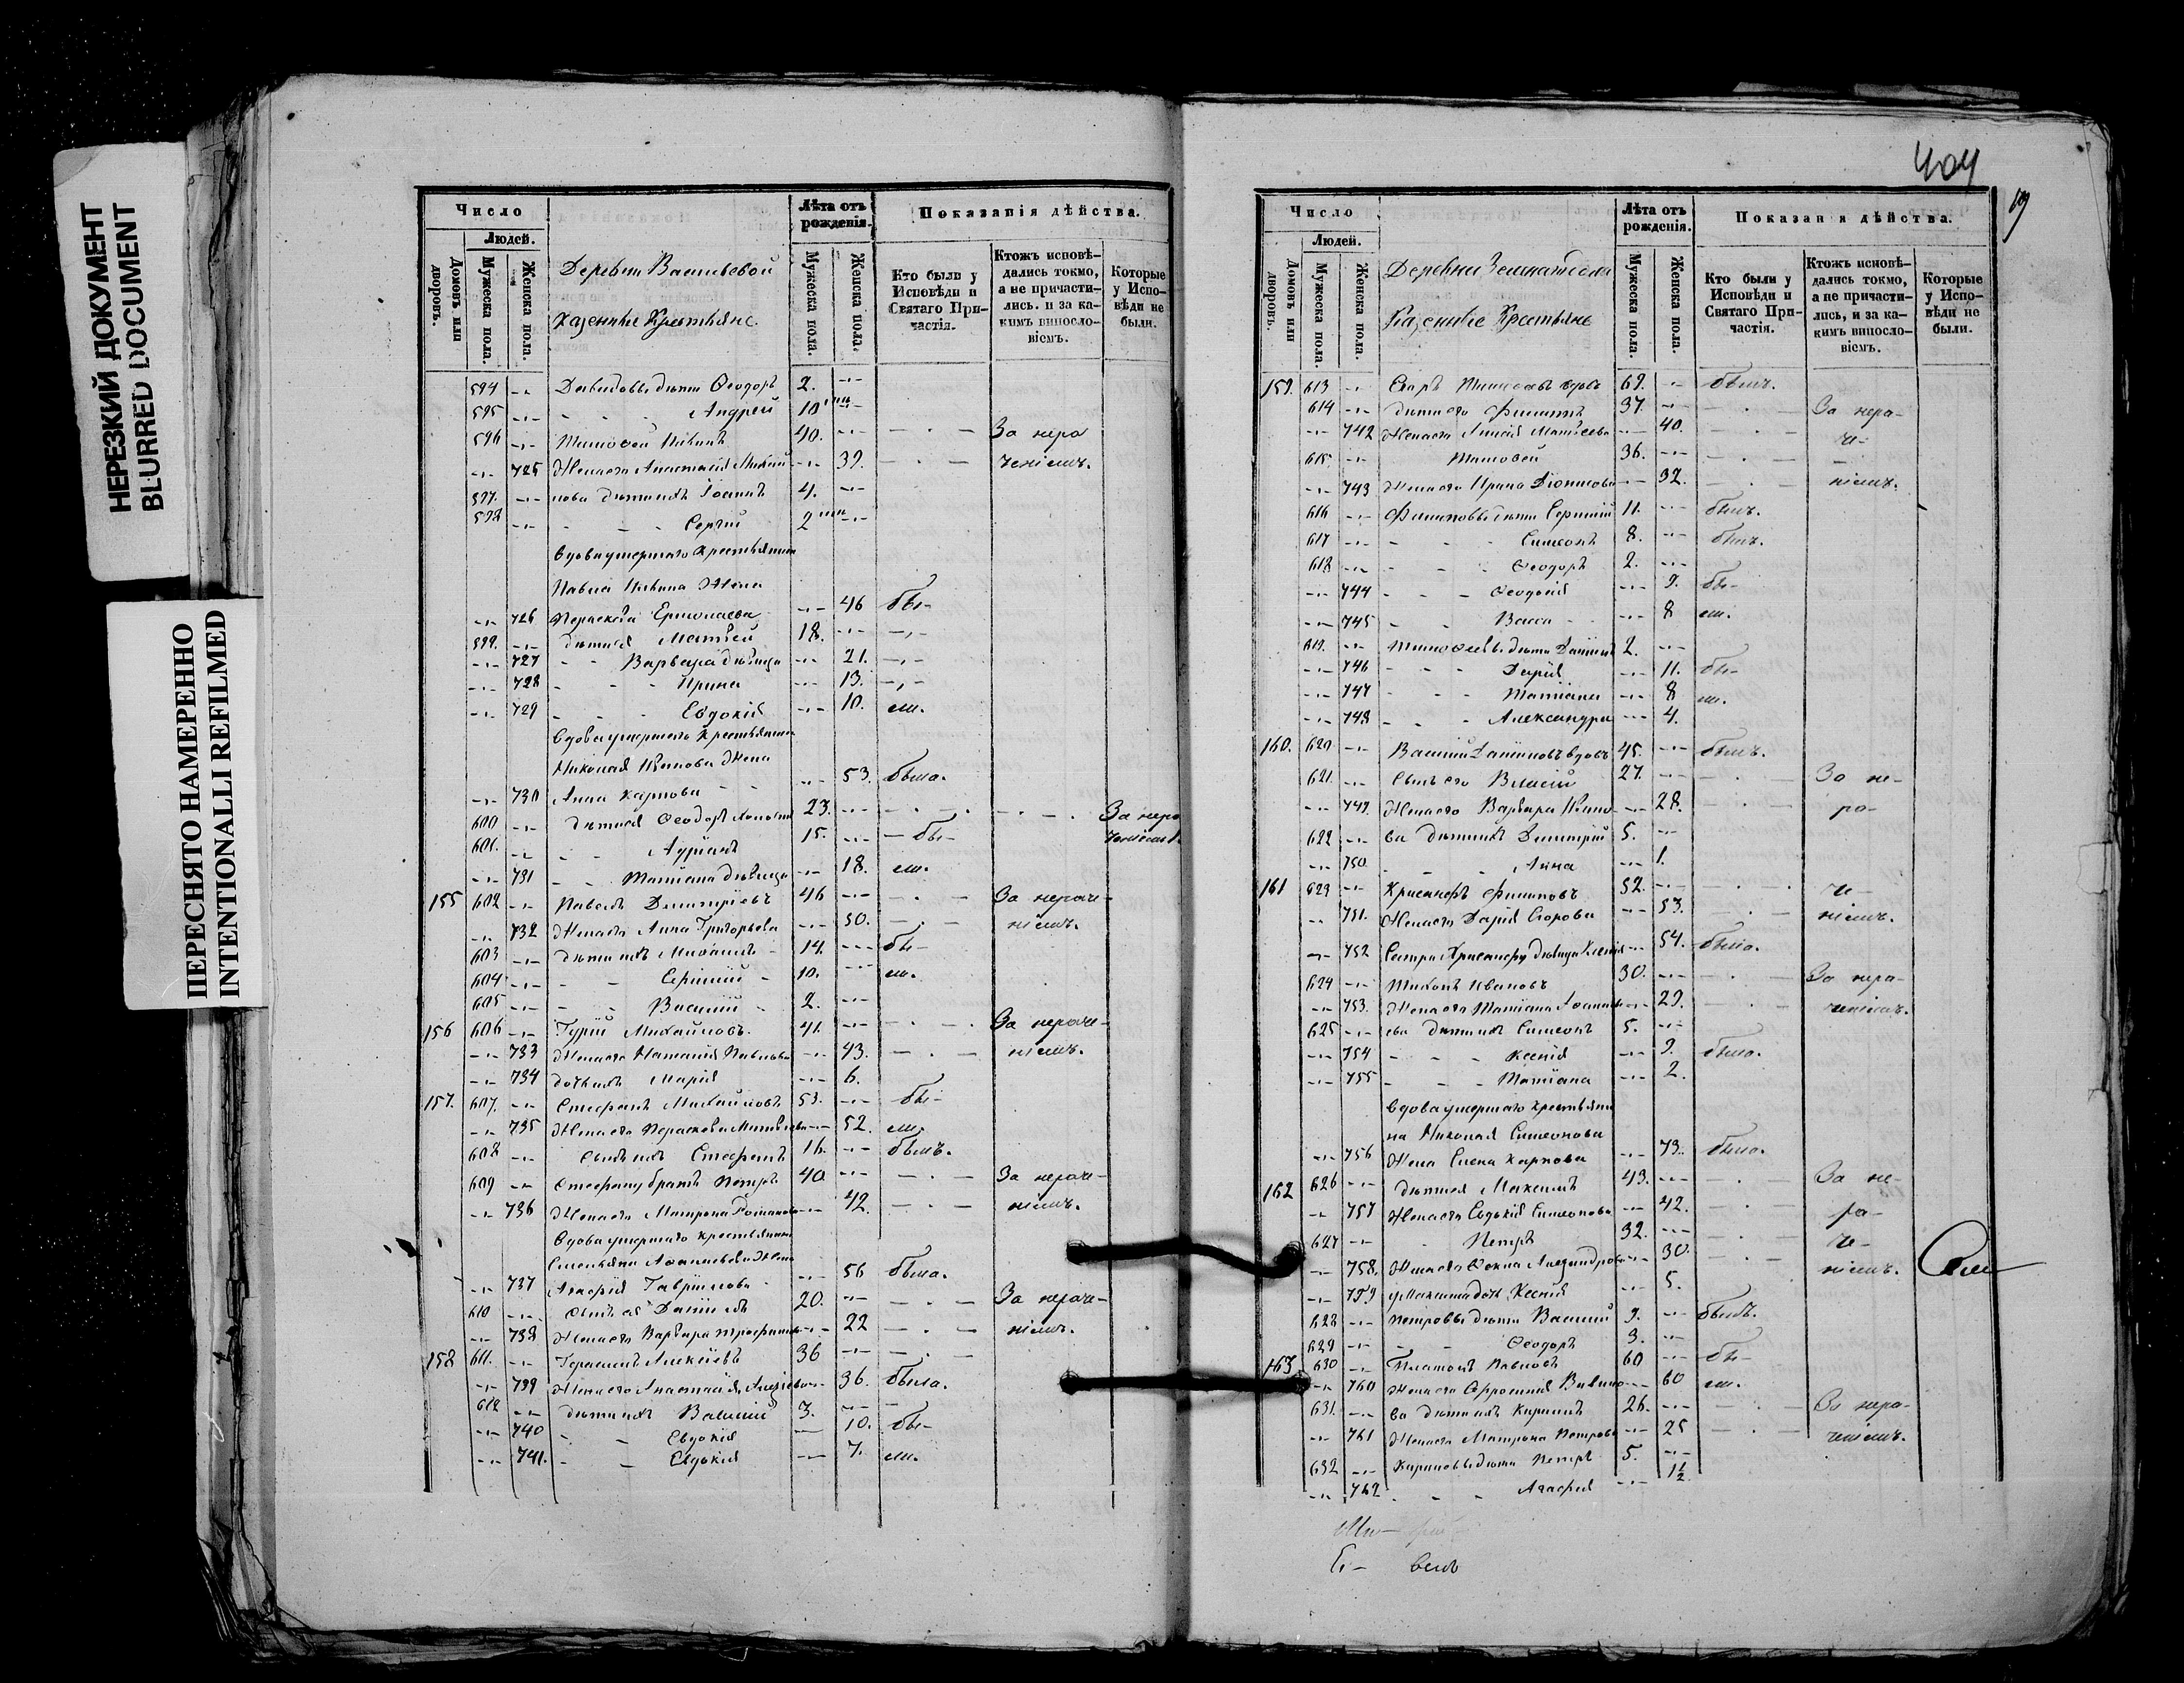 НЕРЕЗКИЙ ДОКУМЕНТ
BLURRED DOCUMENT
ПЕРЕСНЯТО НАМЕРЕННО
INTENTIONALLI REFILMED
Число
Людей.
Домовъ или дворовъ.
Мужеска пола.
Женска пола.
Деревни Васильевой
Казенные Крестьяне.
Лѣта отъ рожденія.
Мужеска пола.
Женска пола.
Показанія дѣйства.
Кто были у Исповѣди и Святаго Причастія.
Ктожъ исповѣдались токмо, а не причастились, и за какимъ винословіемъ.
Которые у Исповѣди не были.
594 Давидовы дѣти Ѳеодоръ 2.
595 Андрей 10
596 Тимоѳей 40. За нера
725 Жена его Анастасія 39. ченіемъ.
597. нова дѣти ихъ Іоаннъ 4.
598 Сергій 2
Вдова умершаго Крестьянина
Павла Жена
726 Параскева Ермолаева 46 бы-
599. дѣти ея Матвей 18.
727 Варвара дѣвица 21.
728 Ирина 13.
729 Евдокія 10. ли.
Вдова умершаго Крестьянина
Николая Иванова Жена
730 Анна Карпова 53. была.
600 дѣти ея Ѳеодоръ 23. За нера
601. Адріанъ 15. бы- ченіемъ.
731 Татіана дѣвица 18. ли.
155 602 Павелъ Димитріевъ 46 За нераче-
732 Жена его Анна Григорьева 50. ніемъ.
603 дѣти ихъ Михаилъ 14. бы-
604 10. ли.
605 Василій 2.
156 606 Гурій Михайловъ. 41. За нераче-
733 Жена его Наталія Павлова 43. ніемъ.
734 дочь ихъ Марія 6.
157. 607. Стефанъ Михайловъ 53. бы-
735 Жена его Параскева 52. ли.
608 Сынъ ихъ Стефанъ 16. былъ.
609 Стефану братъ Петръ 40 За нераче-
736 Жена его Матрона Романова 42. ніемъ.
Вдова умершаго Крестьянина
Жена
737 Агафія Гавриилова 56 была.
610 Сынъ ея Даніилъ 20. За нераче-
738 Жена его Варвара 22 ніемъ.
158 611. Герасимъ Алексіевъ 36
739 Жена его Анастасія 36. была.
612 дѣти ихъ Василій 3.
740 Евдокія 10. бы-
741. Евдокія 7. ли.
404
Число
Людей.
Домовъ или дворовъ.
Мужеска пола.
Женска пола.
Деревни
Казенные Крестьяне
Лѣта отъ рожденія.
Мужеска пола.
Женска пола.
Показан я дѣйства.
Кто были у Исповѣди и Святаго Причастія.
Ктожъ исповѣдались токмо, а не причастились, и за какимъ винословіемъ.
Которые у Исповѣди не были.
159. 613 вдовъ 69. былъ.
614 дѣти его Филиппъ 37. За нера-
742 Жена его Матвеева 40. че-
615. Тимоѳей 36.
743 Жена его Ирина Діонисова 32. ніемъ.
616 Филиповы дѣти 11. былъ.
617 Симеонъ 8. былъ.
618 Ѳеодоръ 2.
744 Ѳеодосія 9. бы-
745 Васса 8 ли.
619. Тимоѳеевы дѣти Даніилъ 2.
746 Дарія 11. бы-
747 Татіана 8 ли.
748 Александра 4.
160. 620 Василій Даніиловъ вдовъ 45. былъ.
621. Сынъ его Власій 27. За не-
749. Жена его Варвара 28. ра-
622 ва дѣти ихъ Димитрій 5.
750. Анна 1.
161 623 Филиповъ 52. че-
751. Жена его Дарія Егорова 53. ніемъ.
752 Сестра дѣвица 54. была.
624 Тихонъ Ивановъ 30. За нера-
753. Жена его Татіана 29. ченіемъ.
625 ева дѣти ихъ Симеонъ 5.
754 Ксенія 9. была.
755 Татіана 2.
Вдова умершаго Крестьяни
на Николая Симеонова
756 Жена Елена Карпова 73. была.
162 626 дѣти ея Максимъ 43. За не-
757 Жена его Евдокія Симеонова 42. ра-
627 Петръ 32. че-
758. Жена его Ѳекла Александрова 30. ніемъ.
759 Ксенія 5.
628 Петровы дѣти Василій 9. былъ.
629 Ѳеодоръ 3.
163. 630 Платонъ Павловъ 60 бы-
760 Жена его 60 ли.
631. ва дѣти ихъ Кириллъ 26. За нера-
761 Жена его Матрона Петрова 25 ченіемъ.
632 Кириловы дѣти Петръ 5.
762 Агафія 1½